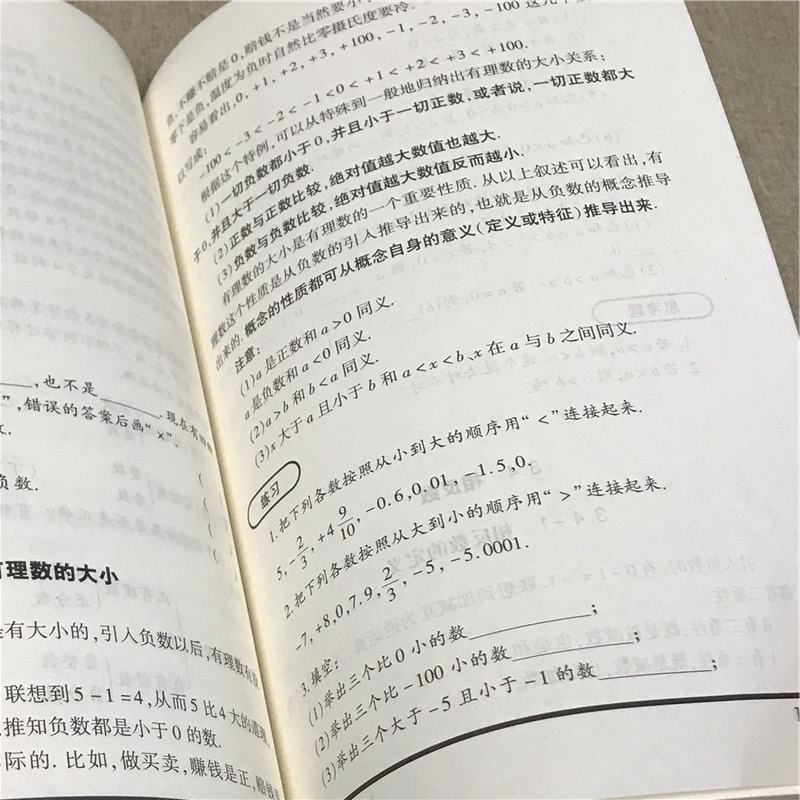 ，也不是______. 现在有四种
”，错误的答案后画“×”.
负数.
有理数的大小
是有大小的，引入负数以后，有理数有
联想到5－1＝4，从而5比4大的道理，
推知负数都是小于0的数.
实际的. 比如，做买卖，赚钱是正，赔钱
负，不赚不赔是0，赔钱不是当然要小
零下是负，温度为负时自然比零摄氏度要冷.
容易看出，0，+1，+2，+3，+100，-1，-2，-3，-100这几个
以写成：
-100<-3<-2<-1<0<+1<+2<+3<+100.
根据这个特例，可以从特殊到一般地归纳出有理数的大小关系：
(1)一切负数都小于0，并且小于一切正数，或者说，一切正数都大
于0，并且大于一切负数.
(2)正数与正数比较，绝对值越大数值也越大.
(3)负数与负数比较，绝对值越大数值反而越小.
有理数的大小是有理数的一个重要性质. 从以上叙述可以看出，有
理数这个性质是从负数的引入推导出来的，也就是从负数的概念推导
出来的. 概念的性质都可从概念自身的意义(定义或特征)推导出来.
注意：
(1)a是正数和a>0同义.
a是负数和a<0同义.
(2)a>b和b<a同义.
(3)x大于a且小于b和a<x<b、x在a与b之间同义.
练习
1. 把下列各数按照从小到大的顺序用“<”连接起来.
5，-2/3，+4 9/10，-0.6，0.01，-1.5，0.
2. 把下列各数按照从大到小的顺序用“>”连接起来.
-7，+8，0，7.9，2/3，-5，-5.0001.
3. 填空：
(1)举出三个比0小的数__________；
(2)举出三个比-100小的数__________；
(3)举出三个大于-5且小于-1的数__________；